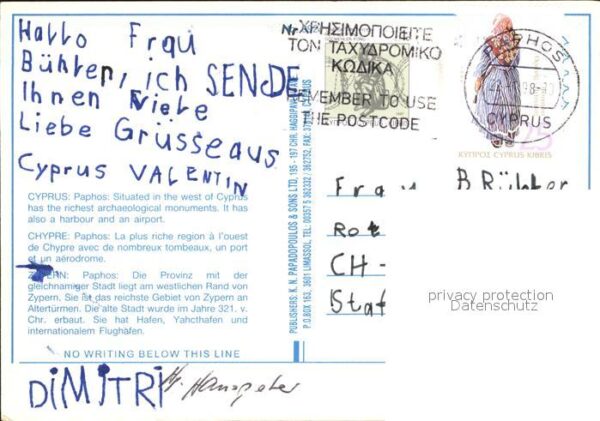 Hallo Frau
Bühler, ich SENDE
Ihnen Viele
Liebe Grüsse aus
Cyprus VALENTIN
CYPRUS: Paphos: Situated in the west of Cyprus
has the richest archaeological monuments. It has
also a harbour and an airport.
CHYPRE: Paphos: La plus riche région à l'ouest
de Chypre avec de nombreux tombeaux, un port
et un aérodrome.
ZYPERN: Paphos: Die Provinz mit der
gleichnamiger Stadt liegt am westlichen Rand von
Zypern. Sie ist das reichste Gebiet von Zypern an
Altertürmen. Die alte Stadt wurde im Jahre 321. v.
Chr. erbaut. Sie hat Hafen, Yahcthafen und
internationalem Flughäfen.
NO WRITING BELOW THIS LINE
DiMiTRi
Hanspeter
PUBLISHERS: K. N. PAPADOPOULOS & SONS LTD, 195 - 197 CHR. HAGGIPAVLOU
P.O.BOX 163, 3601 LIMASSOL, TEL: 00357 5 363332 / 362752, FAX:
ΧΡΗΣΙΜΟΠΟΙΕΙΤΕ
ΤΟΝ ΤΑΧΥΔΡΟΜΙΚΟ
ΚΩΔΙΚΑ
REMEMBER TO USE
THE POSTCODE
PAPHOS
CYPRUS
25
ΚΥΠΡΟΣ CYPRUS KIBRIS
Frau B. Bühler
Rot
CH -
Staf
privacy protection
Datenschutz